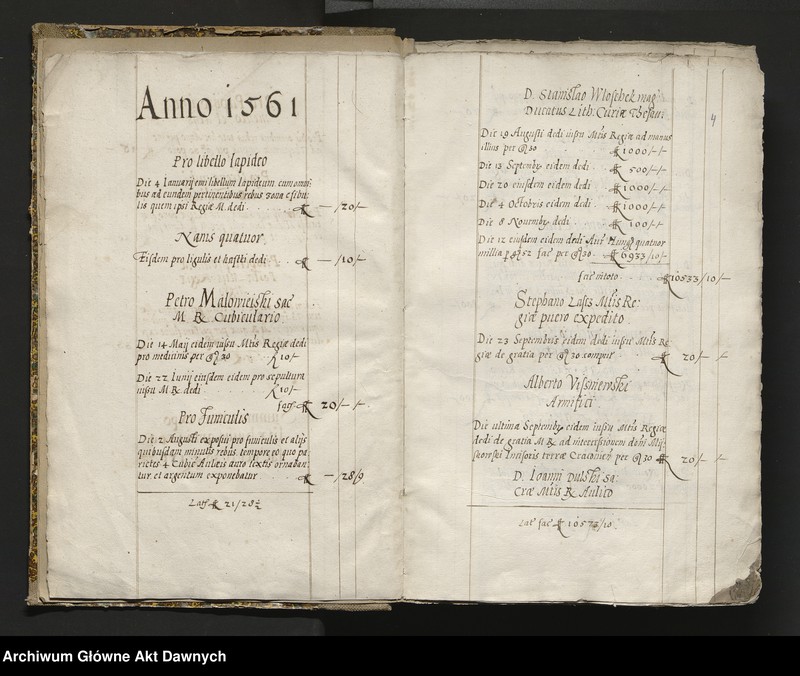 Anno 1561
Pro libello lapideo
Die 4 Ianuarij emi libellum lapideum cum omni-
bus ad eundem pertinentibus rebus
lis quem ipsi Regiæ M. dedi — /20/—
Nanis quatuor
Eisdem pro ligulis et hastis dedi — /10/—
Petro Malowieiski sac
M R Cubiculario
Die 14 Maij eidem iussu Mtis Regiæ dedi
pro medicinis per 30 10/—
Die 22 Iunij eiusdem eidem pro sepultura
iussu M R dedi 10/—
20/—/—
Pro Funiculis
Die 2 Augusti exposui pro funiculis et alijs
quibusdam minutis rebus tempore eo quo pa-
rietes 4 Cubic Aulæis auro textis ornaban-
tur et argentum exponebatur — /28/9
Lat 21/28½
4
D. Stanislao Wloschek mag
Ducatus Lith. Curiæ Thesau
Die 19 Augusti dedi iussu Mtis Regiæ ad manus
illius per 30 1000/—/—
Die 13 Septemb eidem dedi 500/—/—
Die 20 eiusdem eidem dedi 1000/—/—
Die 4 Octobris eidem dedi 1000/—/—
Die 8 Nouemb dedi 100/—/—
Die 12 eiusdem eidem dedi Aur Hung quatuor
millia p 52 fac per 30 6933/10/—
fac in toto 10533/10/—
Stephano Mtis Re-
giæ puero expedito
Die 23 Septembris eidem dedi iussu Mtis Re
giæ de gratia per 30 20/—/—
Alberto Visnnewski
Armifici
Die ultima Septemb eidem iussu Mtis Regiæ
dedi de gratia M R ad intercessionem domi
Incisoris terræ per 30 20/—/—
D. Ioanni Dulski Sa-
cræ Mtis R Aulico
Lat fac 10573/10
Archiwum Główne Akt Dawnych